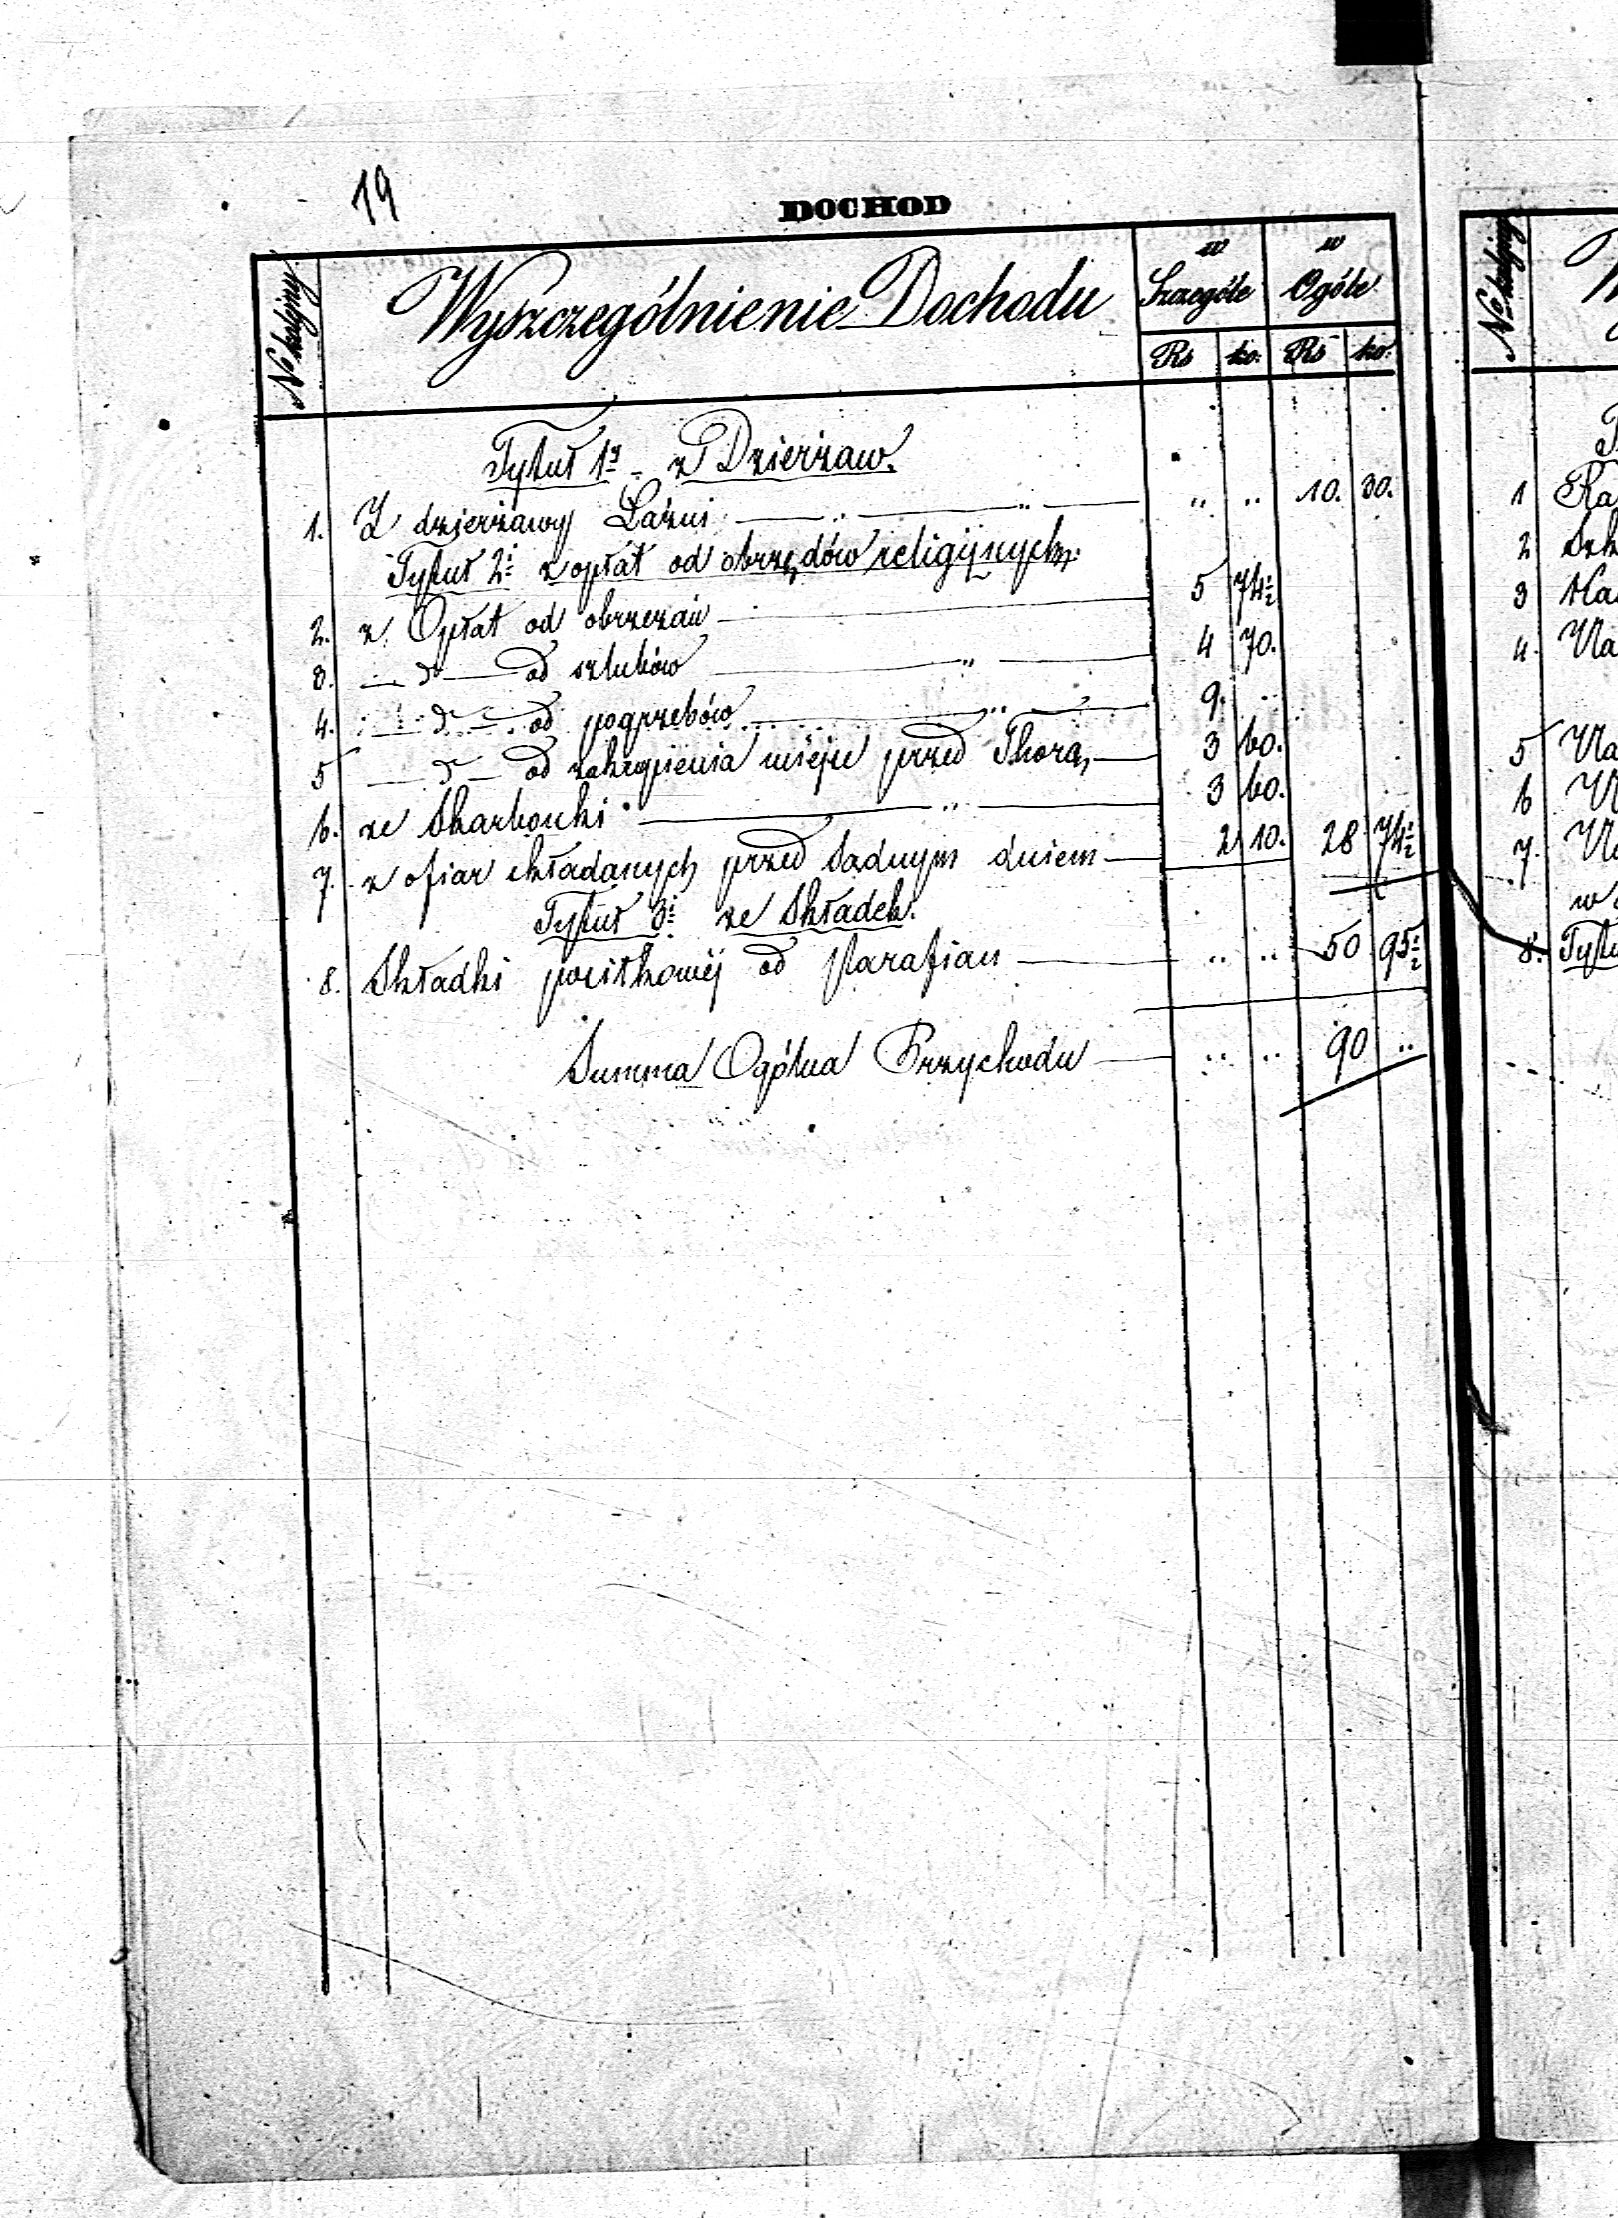 19
DOCHOD
No kolejny
Wyszczególnienie Dochodu
w Szczególe
w Ogóle
Rs ko: Rs ko:
Tytuł 1y - z Dzierżaw.
1. Z dzierżawy Łaźni " " " " 10. 30.
Tytuł 2i z opłat od obrzędów religijnych:
2. z Opłat od obrzezań 5 74½
3. — do — od szlubów " 4 70.
4. — do — od pogrzebów " 9. "
5 — do — od zakupienia miejsc przed Thorą 3 60.
6. ze Skarbonki " 3 60.
7. z ofiar składanych przed Sądnym dniem 2 10. 28 74½
Tytuł 3i ze Składek.
8. Składki posiłkowéj od Parafian " " 50 95½
Summa Ogólna Przychodu " " 90 "
No kolejny
1 Ra
2 Szk
3 Na
4. Na
5 Na
6 Na
7. Na
w
8. Tytu